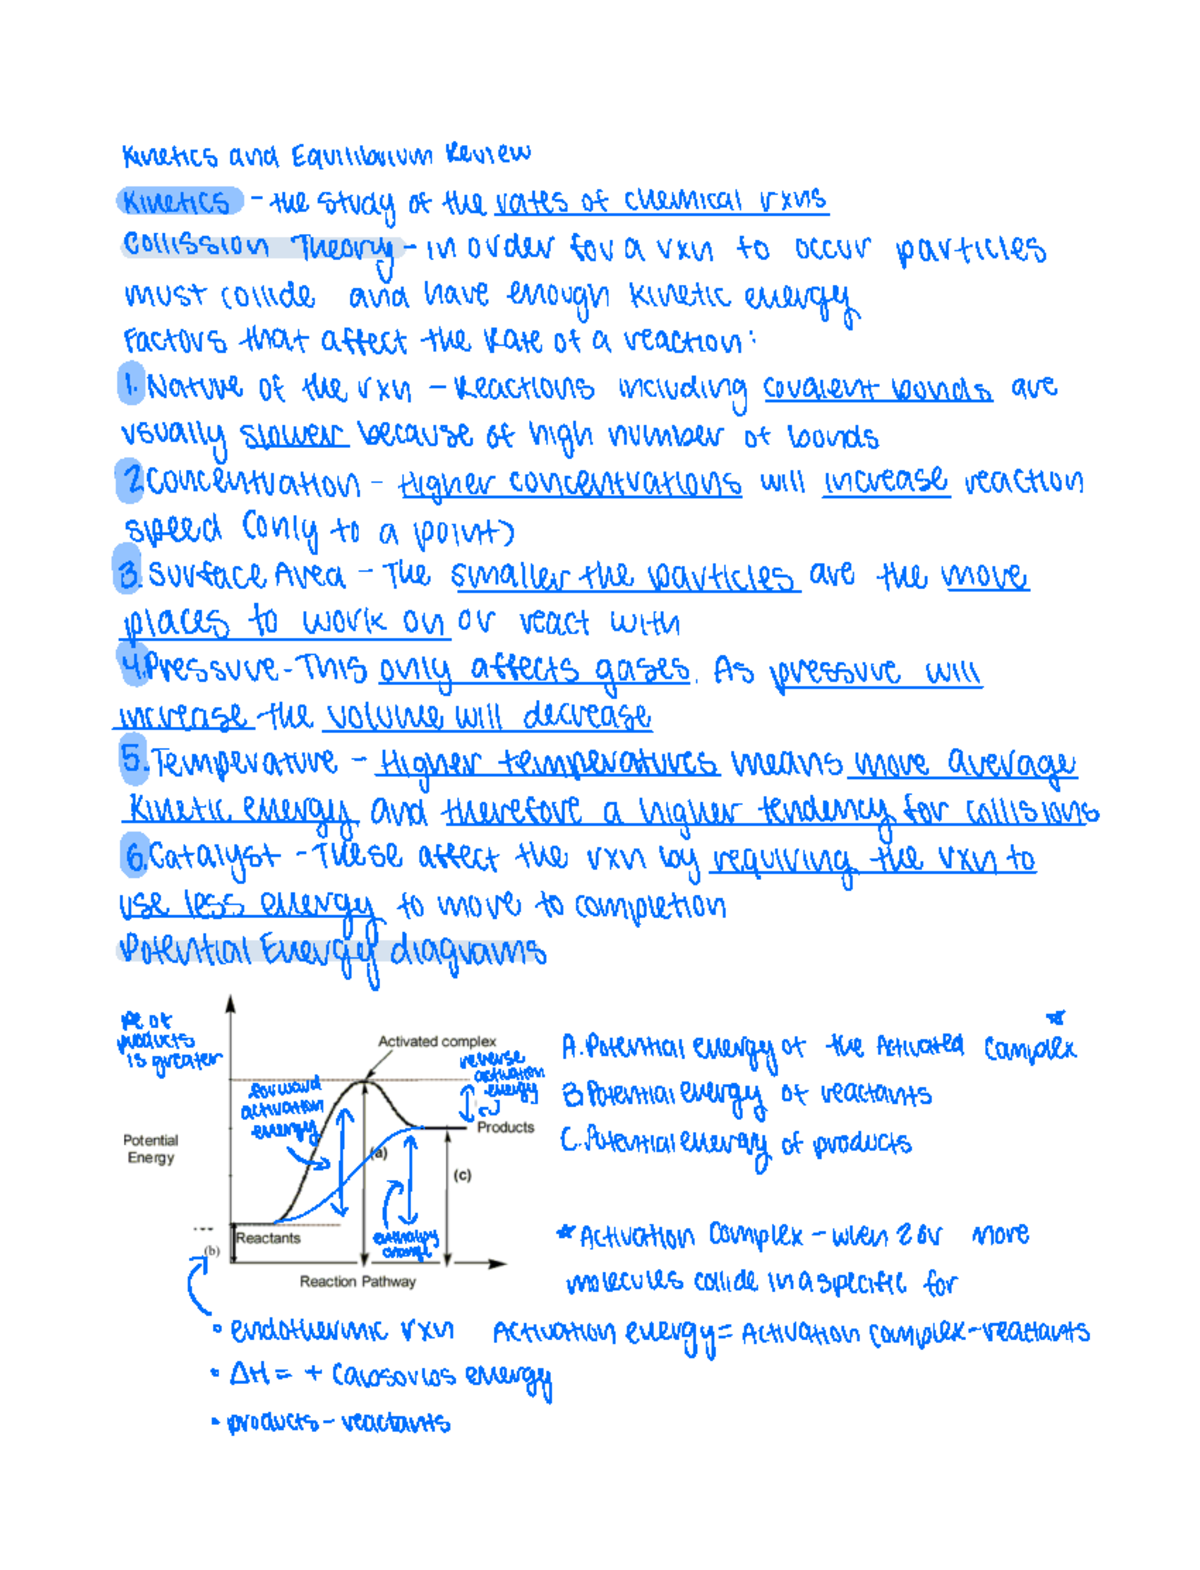 Kinetics and Equilibrium Review
Kinetics - the study of the rates of chemical rxns
Collission Theory - in order for a rxn to occur particles
must collide and have enough kinetic energy
Factors that affect the Rate of a reaction:
1. Nature of the rxn - Reactions including covalent bonds are
usually slower because of high number of bonds
2. Concentration - Higher concentrations will increase reaction
speed (only to a point)
3. Surface Area - The smaller the particles are the more
places to work on or react with
4. Pressure - This only affects gases. As pressure will
increase the volume will decrease
5. Temperature - Higher temperatures means more average
kinetic energy and therefore a higher tendency for collisions
6. Catalyst - These affect the rxn by requiring the rxn to
use less energy to move to completion
Potential Energy diagrams
PE of
products
is greater
Activated complex
reverse
activation
energy
forward
activation
energy
Products
Potential
Energy
(a)
(c)
Reactants
(b)
enthalpy
change
Reaction Pathway
A. Potential energy of the Activated Complex *
B. Potential energy of reactants
C. Potential energy of products
* Activation Complex - when 2 or more
molecules collide in a specific for
• endothermic rxn Activation energy = Activation complex - reactants
• ΔH = + energy
• products - reactants